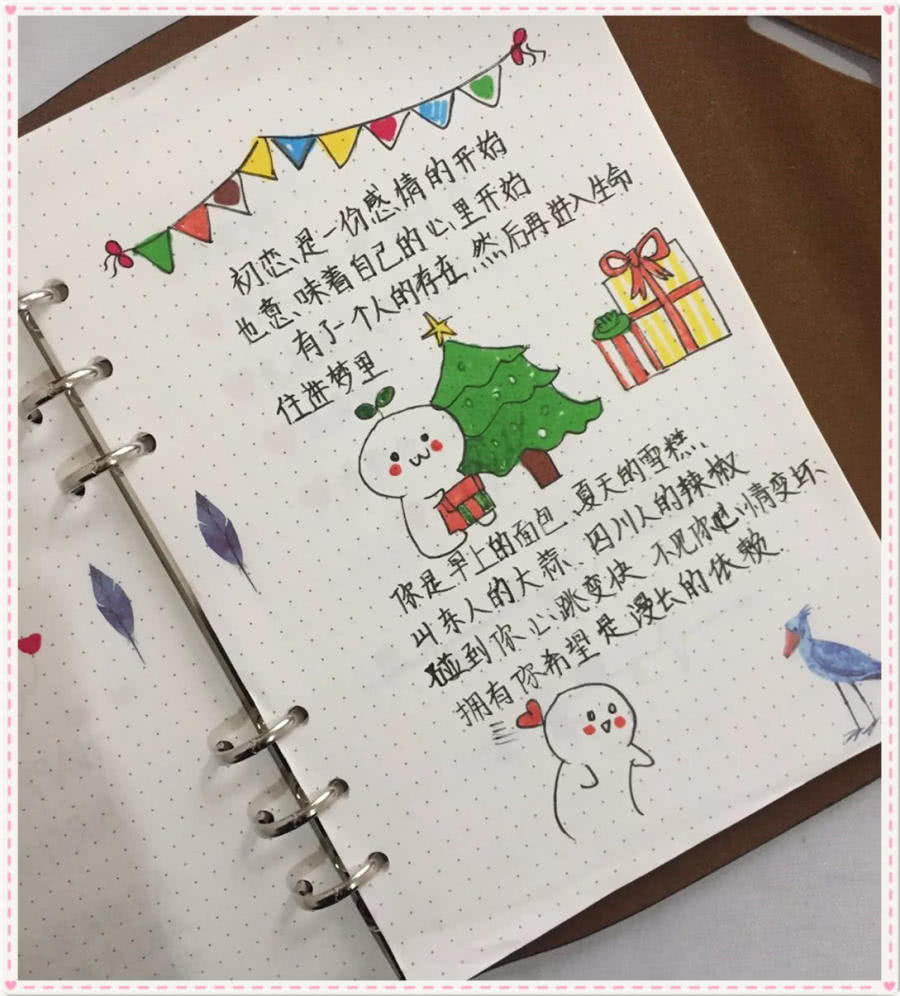 初恋、是一份感情的开始
也意、味着自己的心里开始
有了一个人的存在 然后再进入生命
住进梦里
你是早上的面包、夏天的雪糕、
山东人的大蒜、四川人的辣椒
碰到你心跳变快 不见你心情变坏
拥有你希望是漫长的依赖